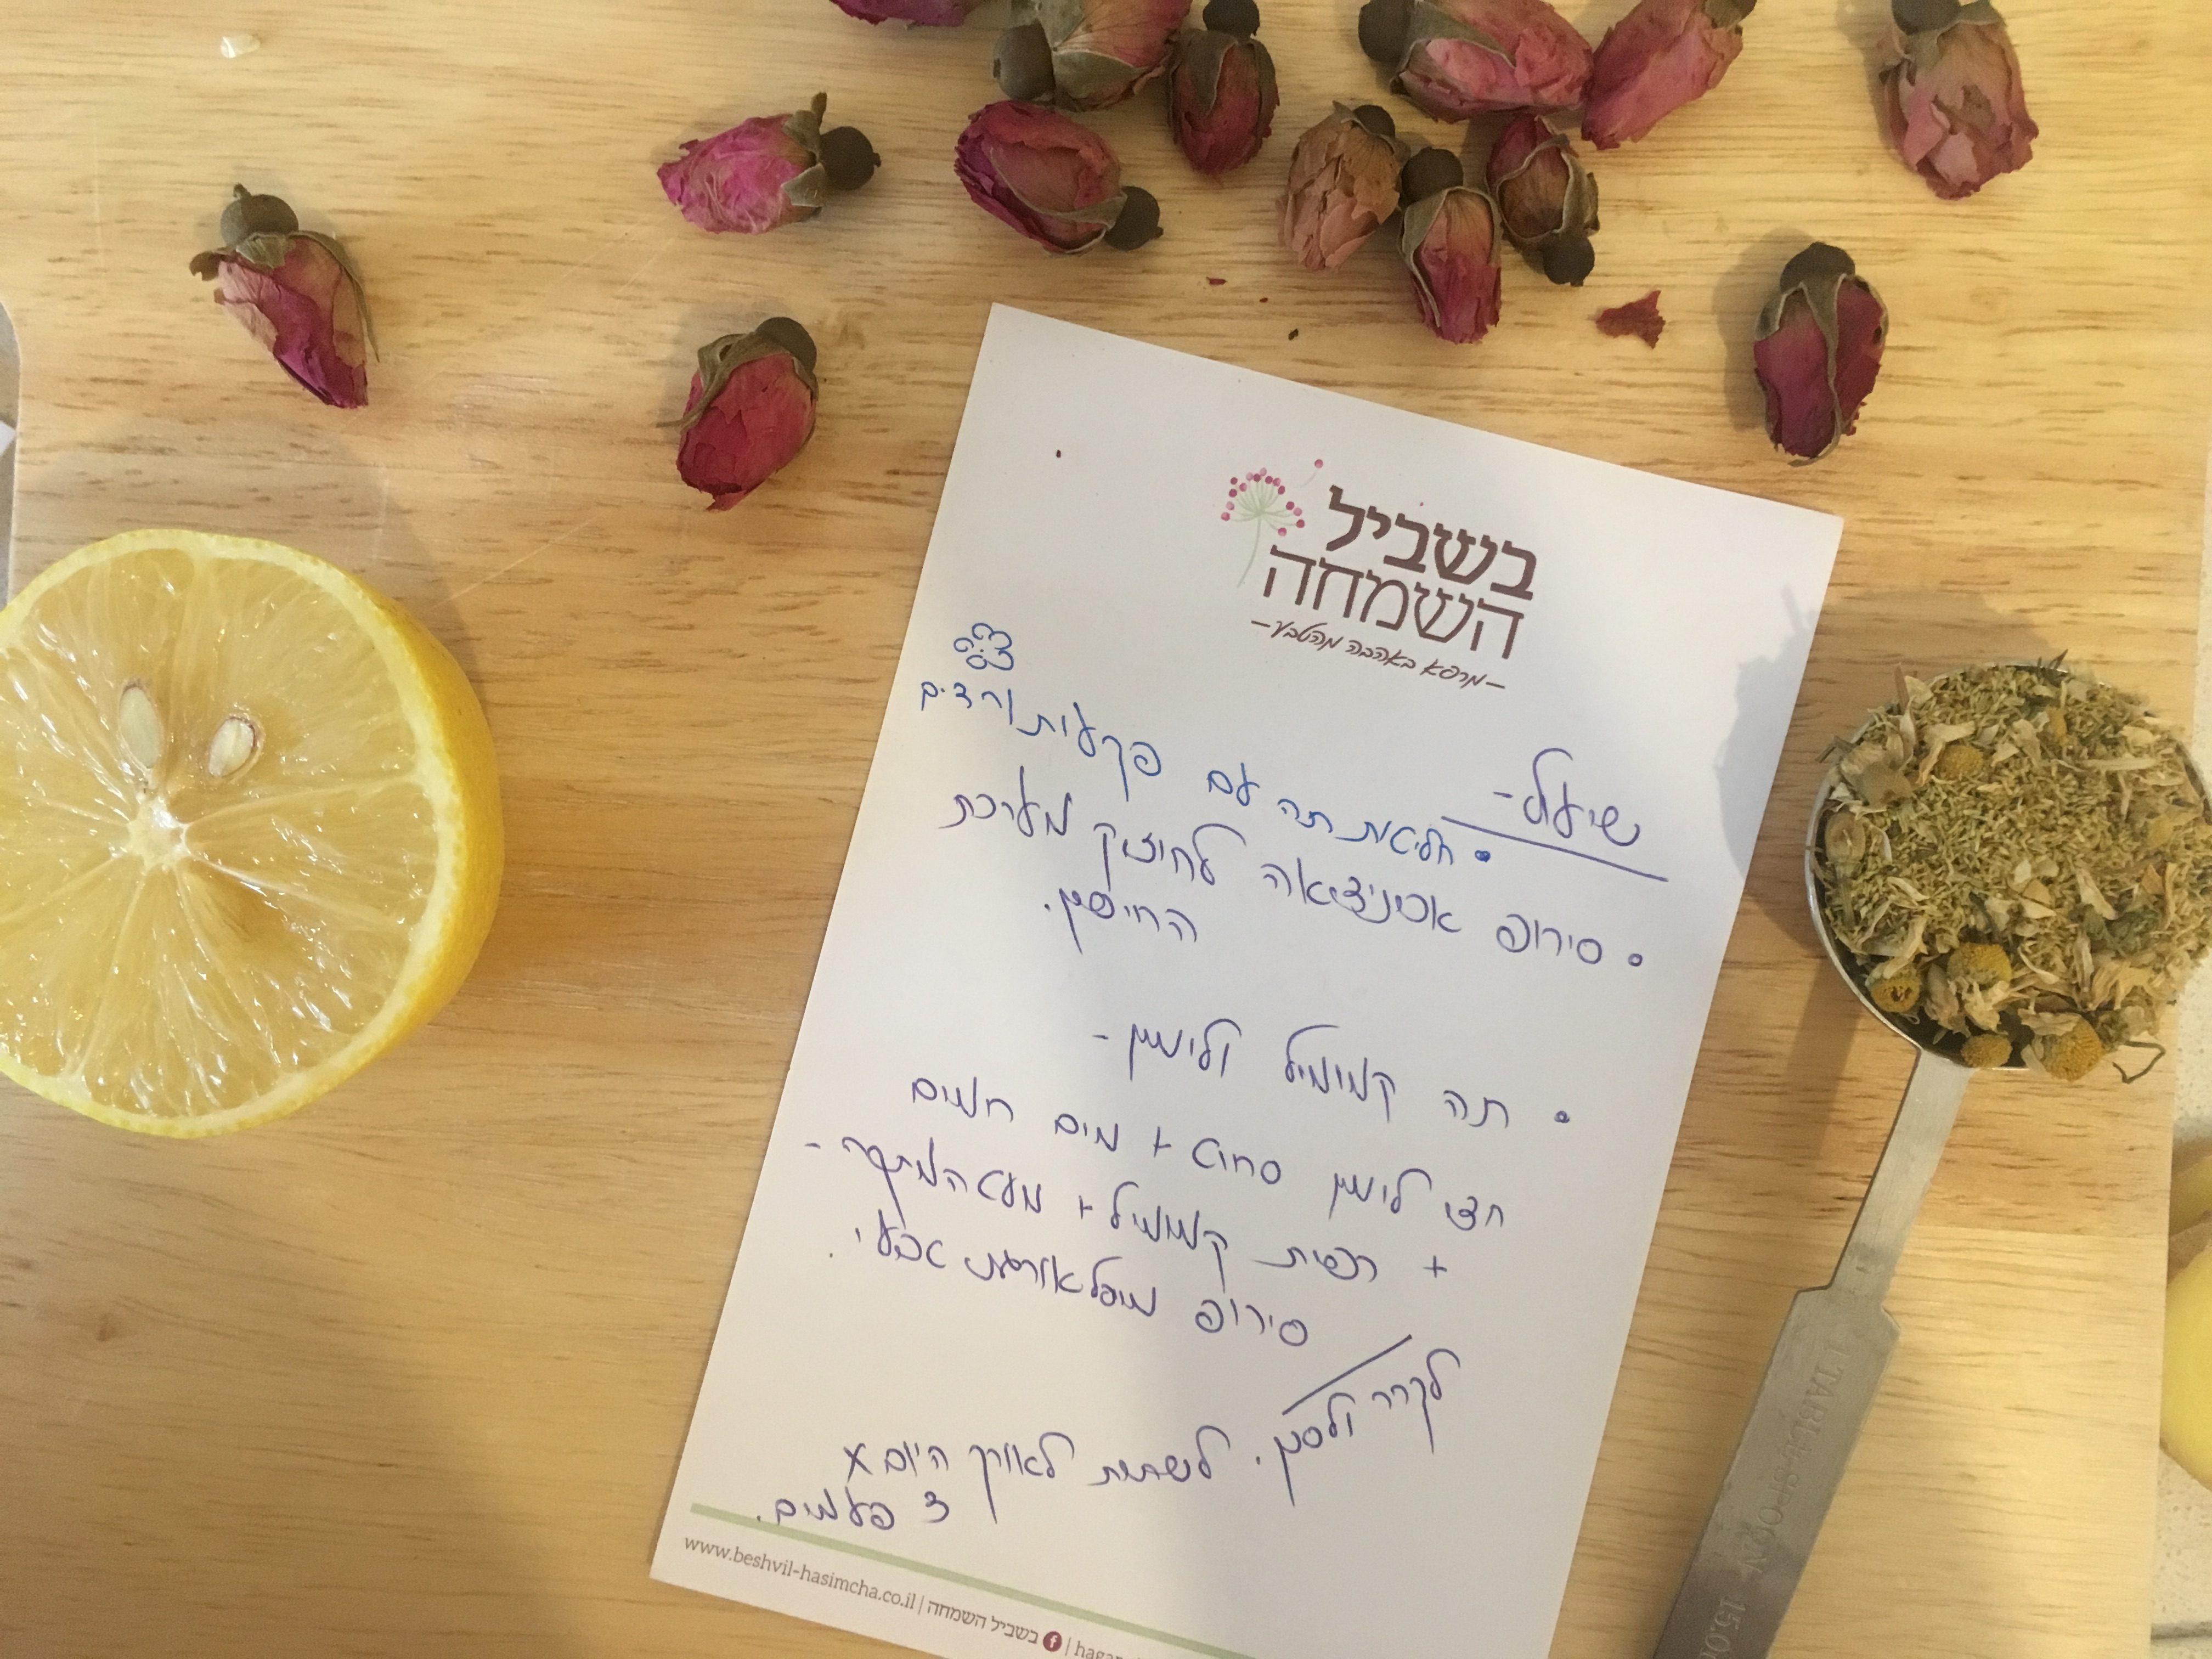 בשביל
השמחה
– מרפא באהבה מהטבע –
שיעול -
• חליטת תה עם פקעות ורדים
• סירופ אכינצאה לחיזוק מערכת
החיסון.
• תה קמומיל ולימון -
חצי לימון סחוט + מים חמים
+ קמומיל + המתקה -
סירופ מייפל אורגני
לקרר ולסנן. לשתות לאורך היום x
3 פעמים.
www.beshvil-hasimcha.co.il | בשביל השמחה f |
TABLESPOON 15.0